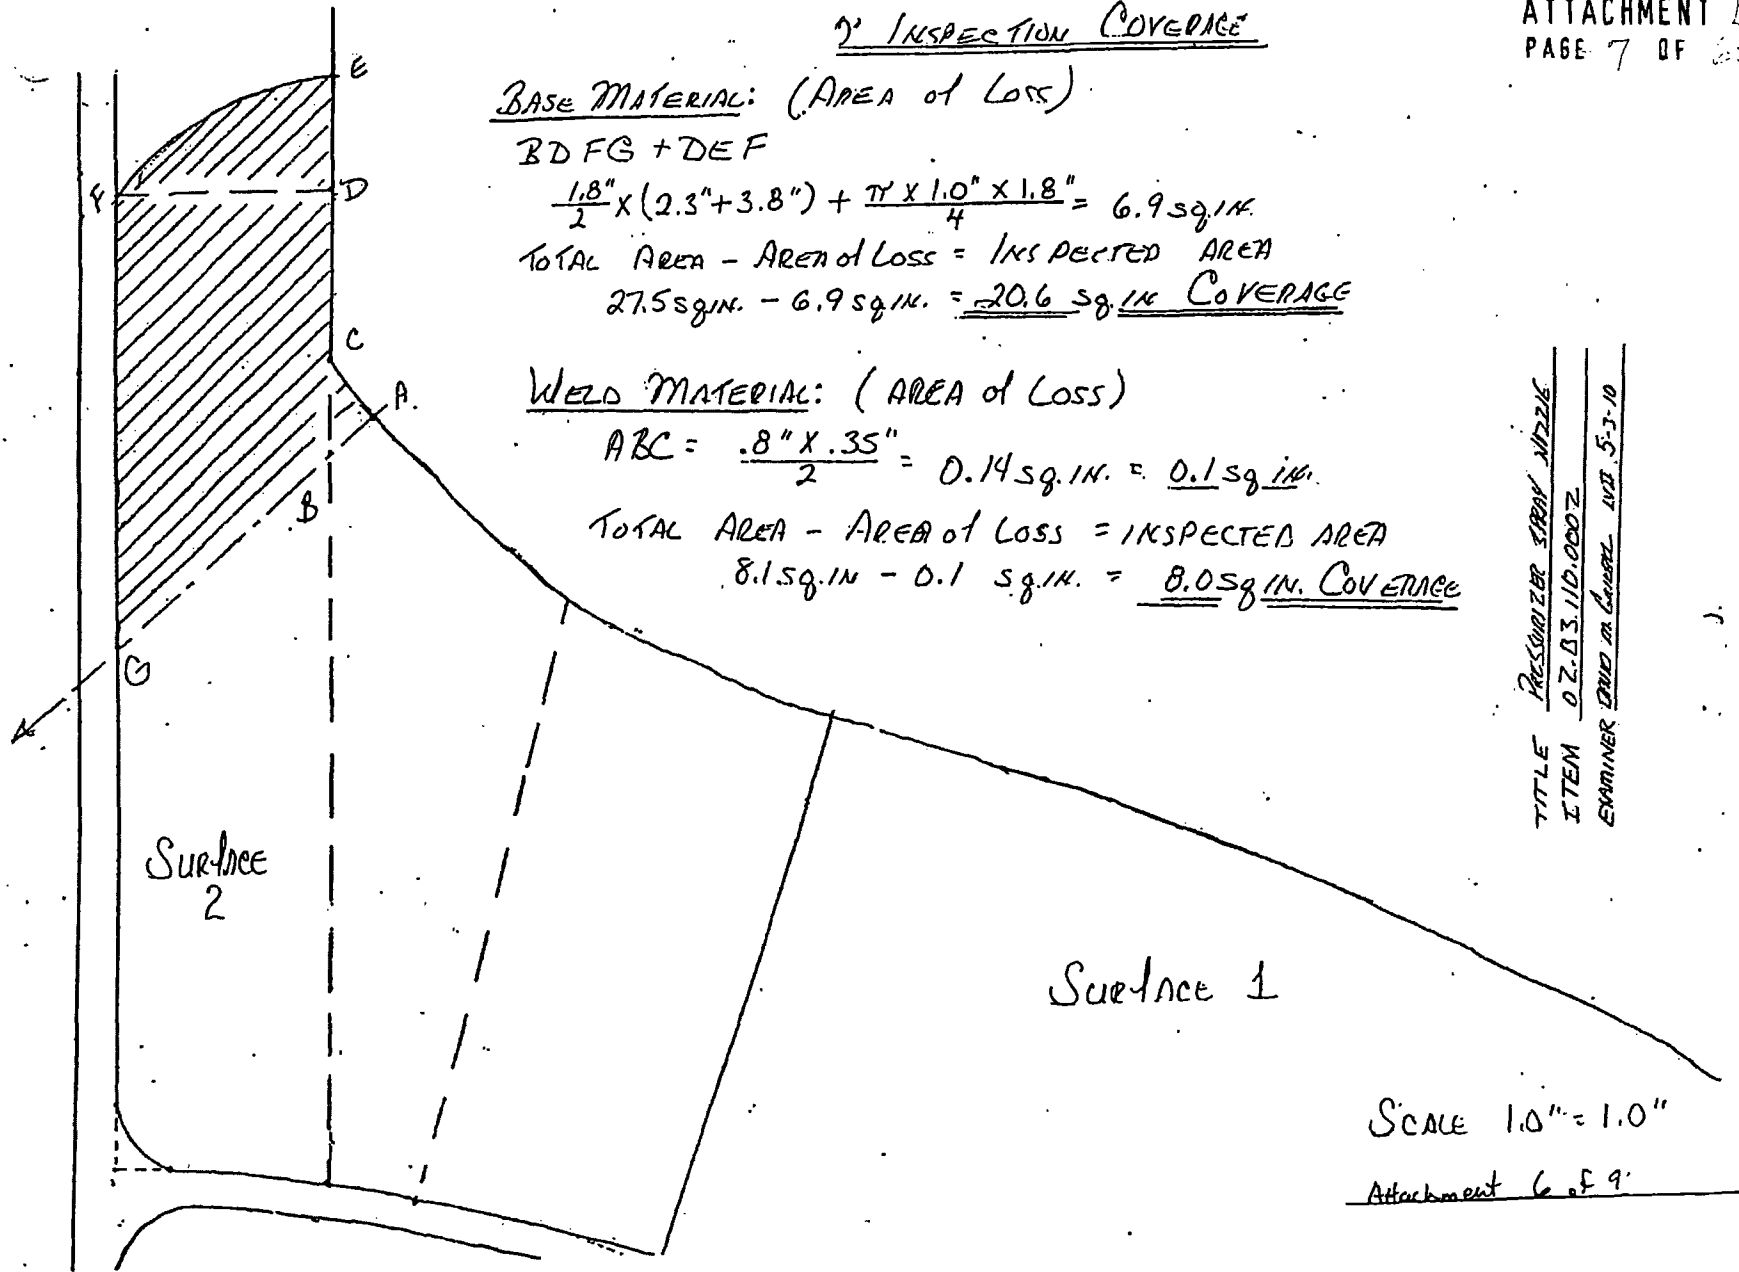 ATTACHMENT
PAGE 7 OF
INSPECTION COVERAGE
BASE MATERIAL: (AREA of LOSS)
BDFG + DEF
1.8"/2 X (2.3"+3.8") + π X 1.0" X 1.8"/4 = 6.9 sq.IN.
TOTAL AREA - AREA of LOSS = INSPECTED AREA
27.5 sq.IN. - 6.9 sq.IN. = 20.6 sq.IN COVERAGE
WELD MATERIAL: (AREA of LOSS)
ABC = .8" X .35"/2 = 0.14 sq.IN. = 0.1 sq in.
TOTAL AREA - AREA of LOSS = INSPECTED AREA
8.1 sq.IN - 0.1 sq.IN. = 8.0 sq IN. COVERAGE
E
F
D
C
A.
B
G
Surface
2
Surface 1
TITLE PRESSURIZER SPRAY NOZZLE
ITEM 02.B3.110.0002
EXAMINER DAVID M. LVII 5-3-10
SCALE 1.0" = 1.0"
Attachment 6 of 9